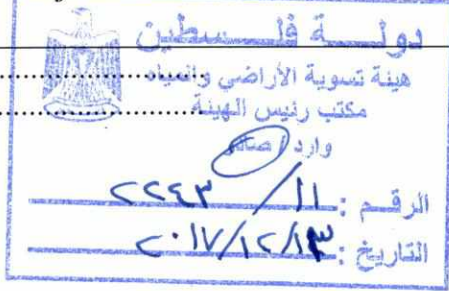 دولة فلسطين
هيئة تسوية الأراضي والمياه
مكتب رئيس الهيئة
وارد / صادر
الرقم : ١١ / ٢٢٤٣
التاريخ : ٢٠١٧/١٢/١٣